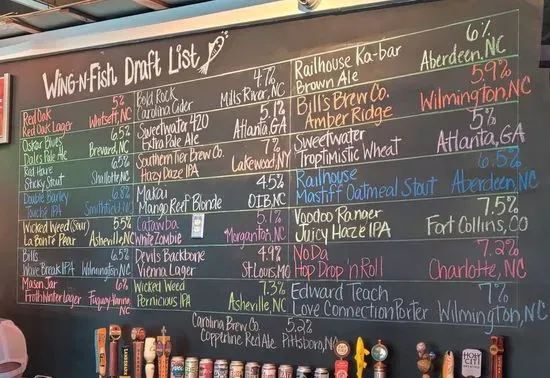 Wing-N-Fish Draft List
Red Oak 5%
Red Oak Lager Whitsett, NC
Oskar Blues 6.5%
Dales Pale Ale Brevard, NC
Red Hare 6.5%
Sticky Stout Shallotte, NC
Double Barley 6.8%
IPA Smithfield
Wicked Weed (Sour) 5.5%
La Bonte Pear Asheville, NC
Bills 6.5%
Wave Break IPA Wilmington, NC
Mason Jar 6%
Froth Winter Lager Fuquay-Varina, NC
Bold Rock 4.7%
Carolina Cider Mills River, NC
Sweetwater 420 5.1%
Extra Pale Ale Atlanta, GA
Southern Tier Brew Co. 7%
Hazy Daze IPA Lakewood, NY
Makai 4.5%
Mango Reef Blonde OIB, NC
Catawba 5.1%
White Zombie Morganton, NC
Devils Backbone 4.9%
Vienna Lager St. Louis, MO
Wicked Weed 7.3%
Pernicious IPA Asheville, NC
Railhouse Ka-bar 6%
Brown Ale Aberdeen, NC
Bill's Brew Co. 5.9%
Amber Ridge Wilmington, NC
Sweetwater 5%
Troptimistic Wheat Atlanta, GA
Railhouse 6.5%
Mastiff Oatmeal Stout Aberdeen, NC
Voodoo Ranger 7.5%
Juicy Haze IPA Fort Collins, CO
NoDa 7.2%
Hop Drop 'n Roll Charlotte, NC
Edward Teach 7%
Love Connection Porter Wilmington, NC
Carolina Brew Co. 5.2%
Copperline Red Ale Pittsboro, NC
HOLY
CITY